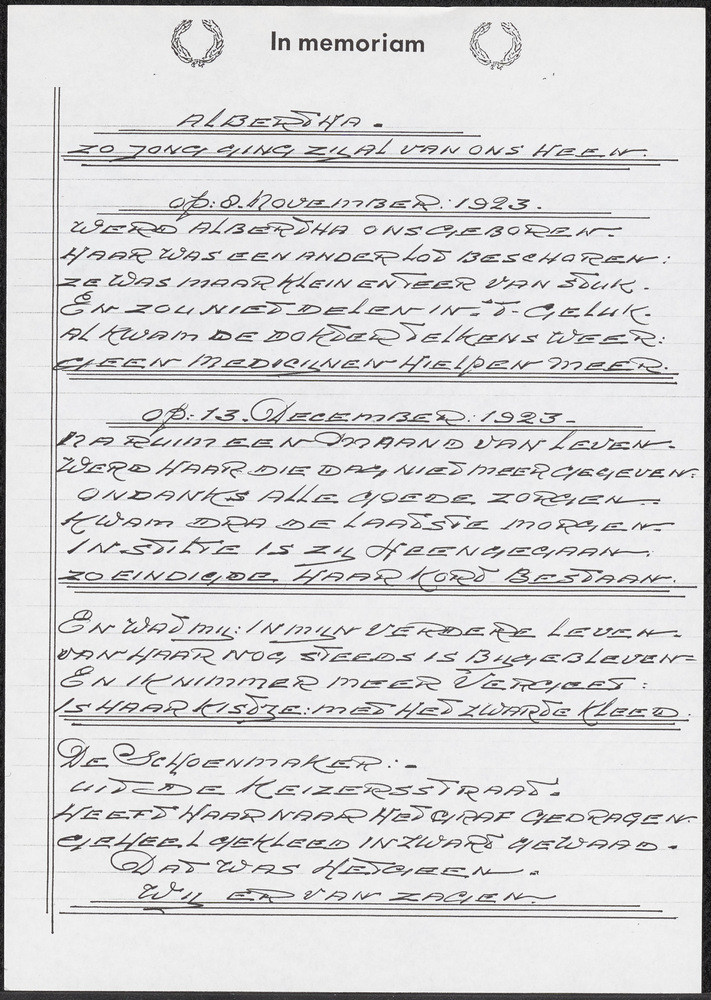 In memoriam
ALBERTHA.
ZO JONG GING ZIJ AL VAN ONS HEEN.
OP: 8. NOVEMBER: 1923.
WERD ALBERTHA ONS GEBOREN.
HAAR WAS EEN ANDER LOT BESCHOREN:
ZE WAS MAAR KLEIN EN TEER VAN STUK.
EN ZOU NIET DELEN IN 'T GELUK.
AL KWAM DE DOKTER TELKENS WEER:
GEEN MEDICIJNEN HIELPEN MEER.
OP: 13. DECEMBER: 1923.
NA RUIM EEN MAAND VAN LEVEN.
WERD HAAR DIE DAG NIET MEER GEGEVEN:
ONDANKS ALLE GOEDE ZORGEN.
KWAM DRA DE LAATSTE MORGEN.
IN STILTE IS ZIJ HEENGEGAAN.
ZO EINDIGDE HAAR KORT BESTAAN.
EN WAT MIJ: IN MIJN VERDERE LEVEN.
VAN HAAR NOG STEEDS IS BIJGEBLEVEN=
EN IK NIMMER MEER VERGEET:
IS HAAR KISTJE: MET HET ZWARTE KLEED.
DE SCHOENMAKER:.
UIT DE KEIZERSSTRAAT.
HEEFT HAAR NAAR HET GRAF GEDRAGEN.
GEHEEL GEKLEED IN ZWART GEWAAD.
DAT WAS HETGEEN.
WIJ ER VAN ZAGEN.